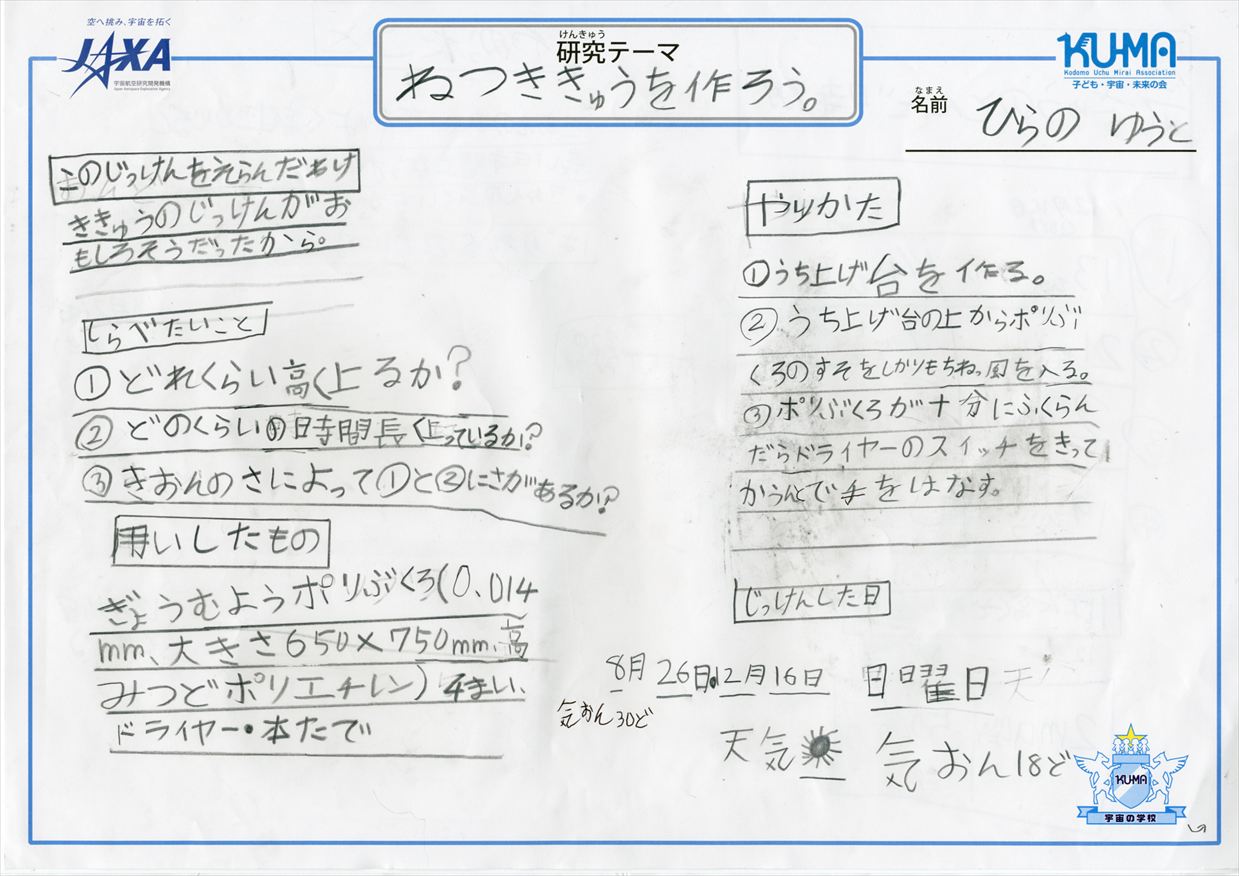 空へ挑み、宇宙を拓く
JAXA
宇宙航空研究開発機構
Japan Aerospace Exploration Agency
けんきゅう
研究テーマ
ねつききゅうを作ろう。
KU-MA
Kodomo Uchu Mirai Association
子ども・宇宙・未来の会
なまえ
名前
ひらの ゆうと
このじっけんをえらんだわけ
ききゅうのじっけんがお
もしろそうだったから。
しらべたいこと
①どれくらい高く上るか?
②どのくらいの時間長く上っているか?
③きおんのさによって①と②にさがあるか?
用いしたもの
ぎょうむようポリぶくろ(0.014
mm、大きさ650×750mm、高
みつどポリエチレン)4まい、
ドライヤー・本たて
やりかた
①うち上げ台を作る。
②うち上げ台の上からポリぶ
くろのすそをしかりもちねっ風を入る。
③ポリぶくろが十分にふくらん
だらドライヤーのスイッチをきって
手をはなす。
じっけんした日
8月26日、12月16日 日曜日
気おん30ど
天気 気おん18ど
KU-MA
宇宙の学校